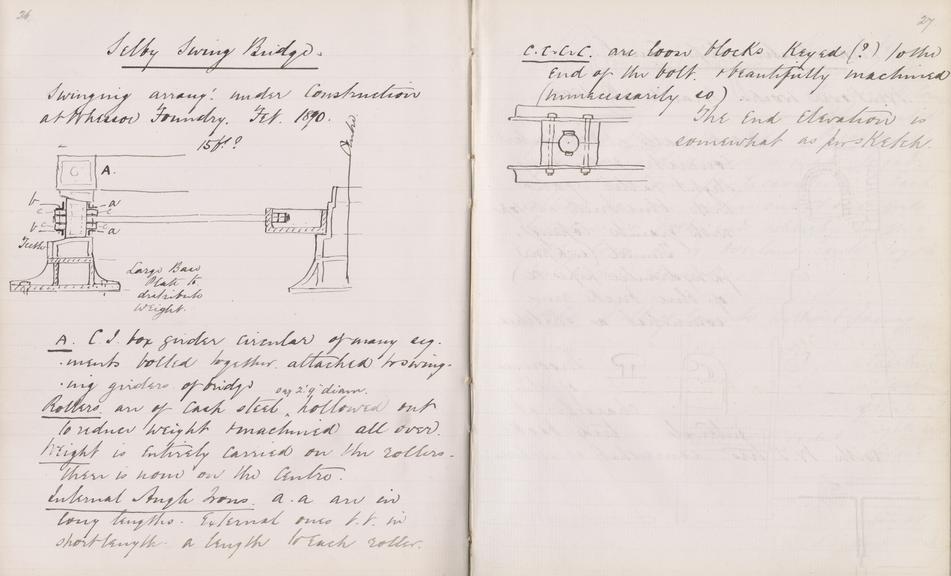 26
Selby Swing Bridge.
Swinging arrangt. under Construction
at Whessoe Foundry. Feb. 1890.
15ft?
Centre
A.
b a
c c
c c
b a
Teeth
Large Base
Plate to
distribute
Weight.
A. C.I. box girder circular of many seg-
-ments bolted together. attached to swing-
-ing girders of bridge
say 2'.9" diam.
Rollers are of cast steel, hollowed out
to reduce weight & machined all over.
Weight is entirely carried on the rollers-
there is none on the centre.
Internal Angle Irons. a.a are in
long lengths. External ones b.b. in
short length. a length to each roller.
27
C.C.C.C. are loose blocks keyed (?) to the
end of the bolt. & beautifully machined
(unnecessarily so)
The end elevation is
somewhat as per sketch.